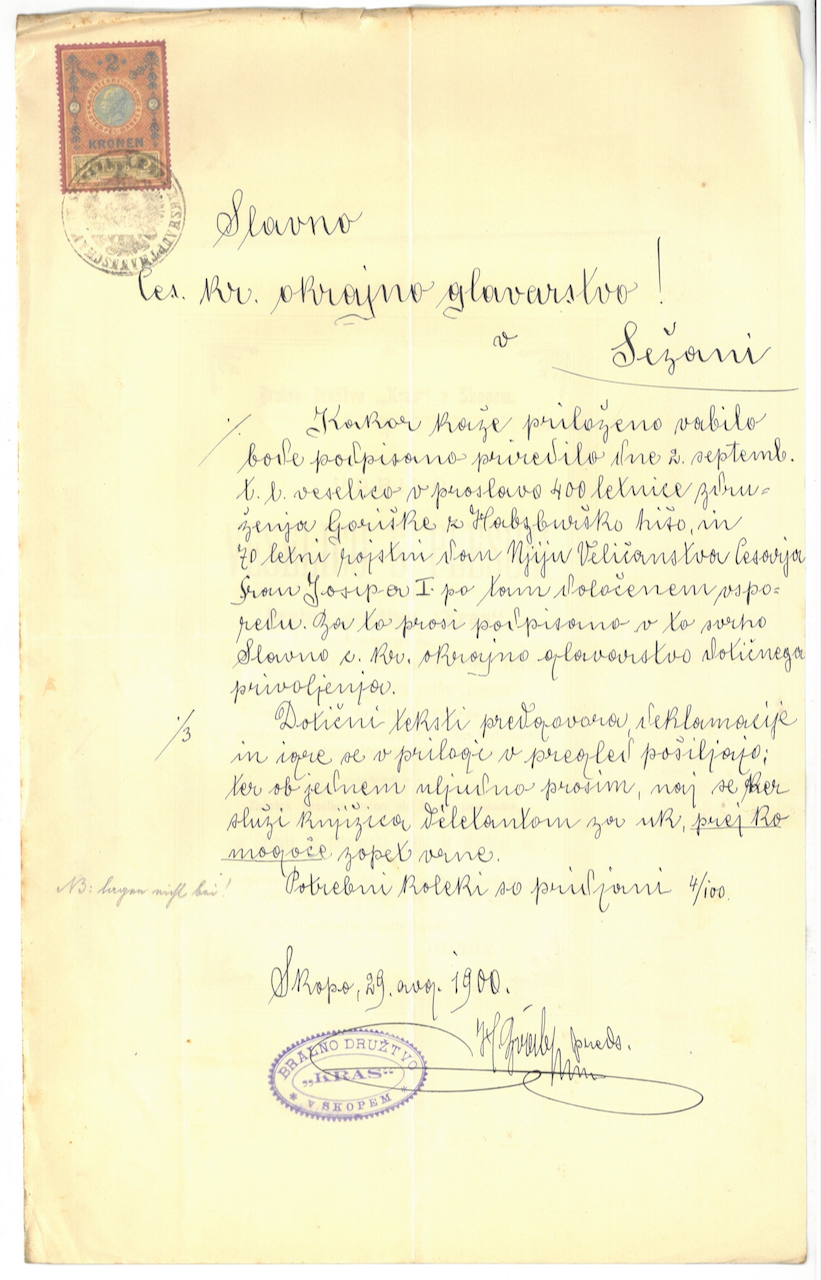 2
2 2
KRONEN
Slavno
Ces. kr. okrajno glavarstvo!
v
Sežani
·/. Kakor kaže priloženo vabilo
bode podpisano priredilo dne 2. septemb.
t. l. veselico v proslavo 400 letnice zdru=
ženja Goriške z Habzburško hišo, in
70 letni rojstni dan Njiju Veličanstva Cesarja
Fran Josipa I. po tam določenem vspo-
redu. Za to prosi podpisano v to svrho
Slavno c. kr. okrajno glavarstvo dotičnega
privoljenja.
·/3 Dotični teksti predgovora, deklamacije
in igre se v prilogi v pregled pošiljajo;
ter ob jednem uljudno prosim, naj se ker
služi knjižica diletantom za uk, prej ko
mogoče zopet vrne.
NB: lagen nicht bei!
Potrebni koleki so pridjani 4/100.
Skopo, 29. avg. 1900.
preds.
BRALNO DRUŽTVO
„KRAS“
* V SKOPEM *